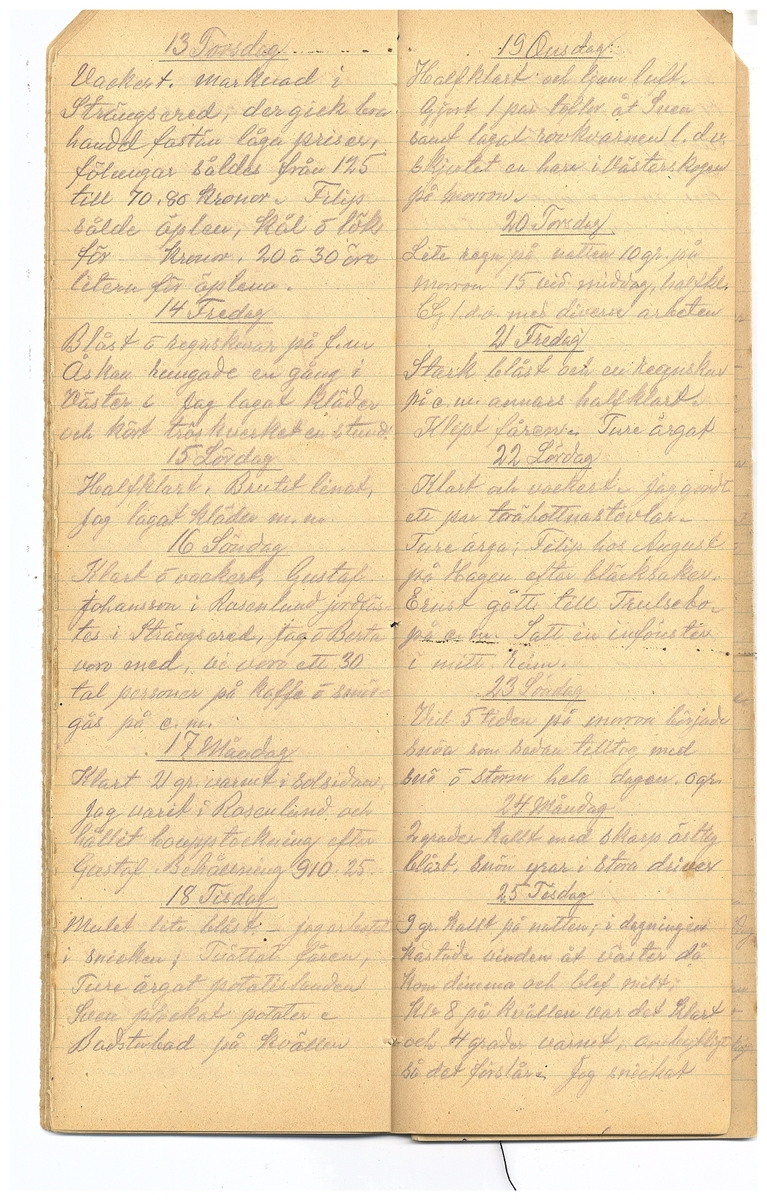 13 Torsdag
Vackert. marknad i
Strängsered, der gick bra
handel fastän låga priser,
fölungar såldes från 125
till 70. 80 kronor. Filip
sålde äplen, kål o lök
för kronor. 20 à 30 öre
litern för äplena.
14 Fredag
Blåst o regnskurar på f.m
Åskan rungade en gång i
Väster. Jag lagat kläder
och kört tröskverket en stund.
15 Lördag
Halfklart, Brutit linet,
jag lagat kläder m. m.
16 Söndag
Klart o vackert, Gustaf
Johansson i Rosenlund jordfäs-
tes i Strängsered, jag o Berta
voro med, vi voro ett 30
tal personer på kaffe o smör-
gås på e. m.
17 Måndag
Klart 21 gr. varmt i solsidan,
Jag varit i Rosenlund och
hållit bouppteckning efter
Gustaf. Behållning 910. 25.
18 Tisdag
Mulet lite blåst; - jag arbetat
i snickeri; Tvättat fåren,
Ture årgat potatislanden
Sven plockat potater
Badstubad på kvällen
19 Onsdag
Halfklart och ljum luft.
Gjort 1 par tofflor åt Sven
samt lagat rovkvarnen
Skjutet en hare i Västerskogen
på morron.
20 Torsdag
Lite regn på natten 10 gr. på
morron 15 vid middag, halfkl.
med diverse arbeten
21 Fredag
Stark blåst och en regnskur
på e. m. annars halfklart.
Klipt fåren. Ture årgat
22 Lördag
Klart och vackert. jag gjordt
ett par träbottnastevlar.
Ture årga; Filip hos August
på Hagen efter bläcksaker.
Ernst gått till Trulsebo
på e. m. Satt in infönster
i mitt rum.
23 Söndag
Vid 5 tiden på morron började
snöa som sedan tilltog med
snö o storm hela dagen. 0 gr.
24 Måndag
2 grader kallt med skarp ostlig
blåst. snön yrar i stora drivor
25 Tisdag
9 gr. kallt på natten; i dagningen
kastade vinden åt väster då
kom dimma och blef milt;
Kl 8 på kvällen var det klart
och 4 grader varmt;
så det förslår. Jag snickat